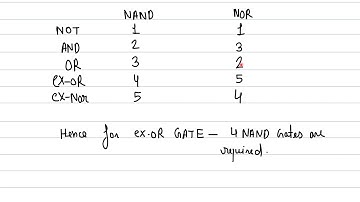 NAND NOR
NOT 1 1
AND 2 3
OR 3 2
EX-OR 4 5
EX-Nor 5 4
Hence for ex-OR GATE - 4 NAND Gates are
required.